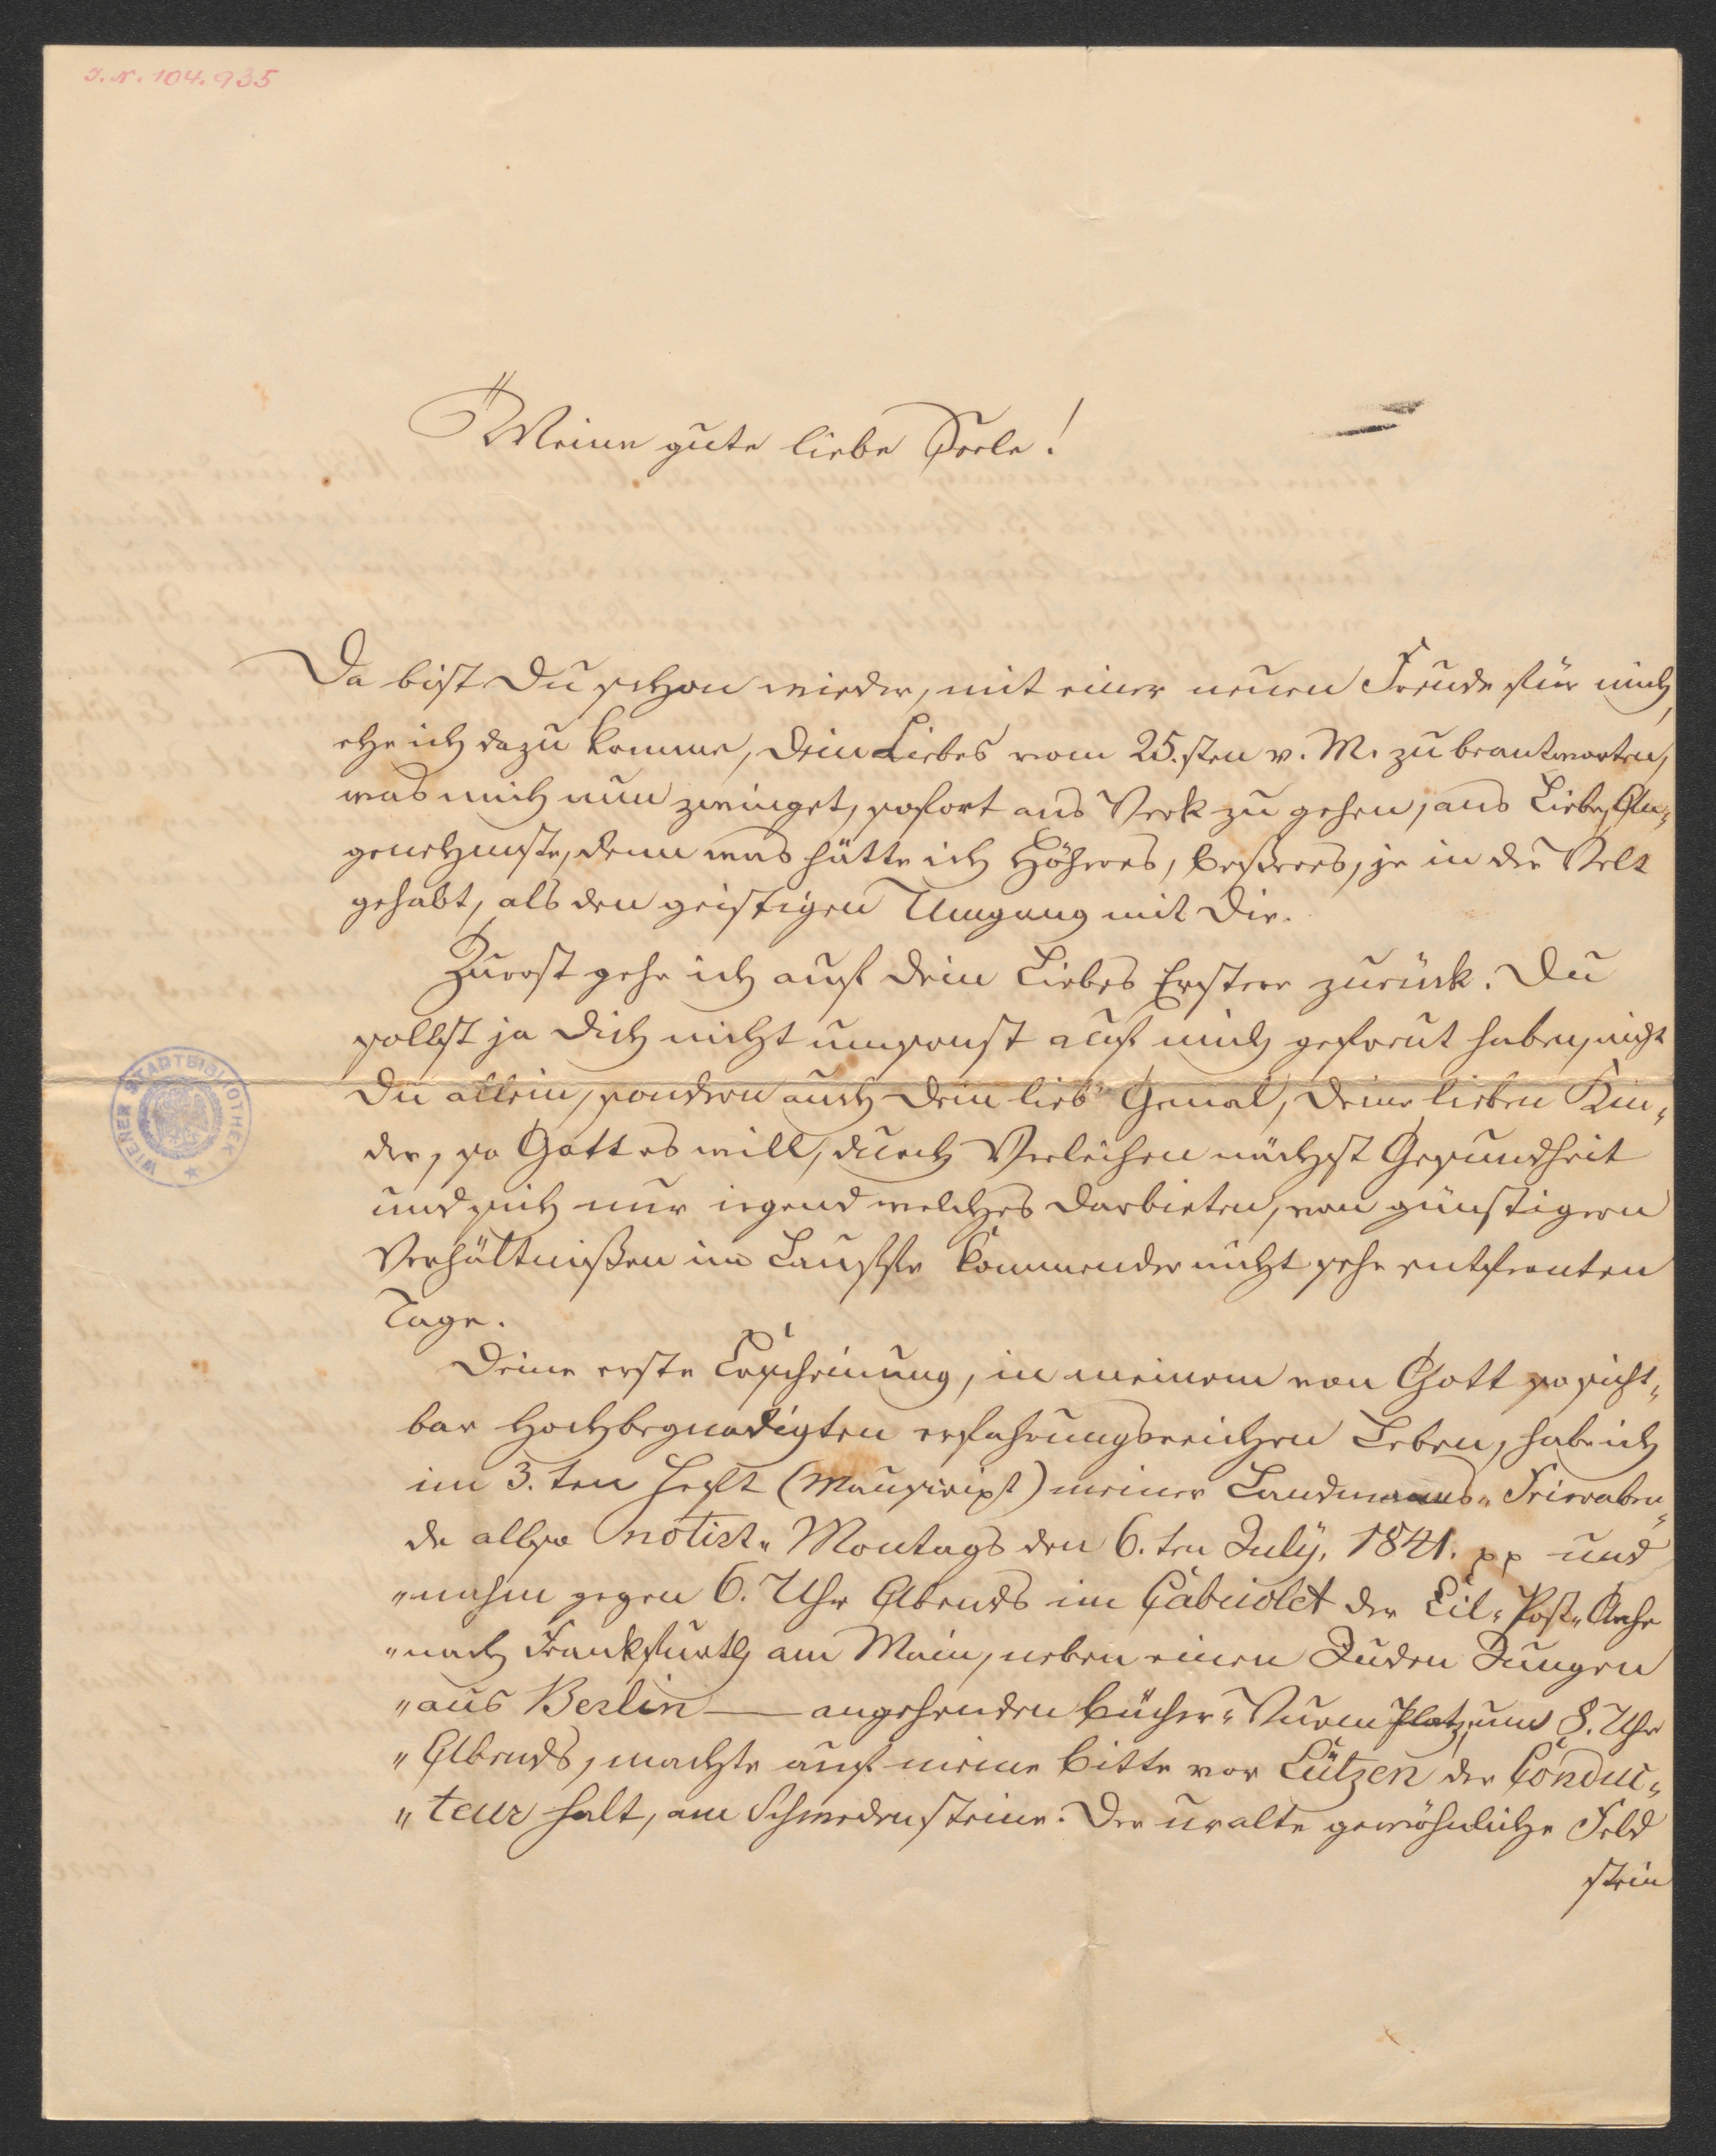 I. N. 104.935
Meine gute liebe Seele!
Da bist Du schon wieder, mit einer neuen Freude für mich,
ehe ich dazu komme, Dein Liebes vom 25.sten v. M. zu beantworten,
was mich nun zwinget, sofort ans Werk zu gehen, ans Liebe, An„
genehmste, denn was hätte ich Höheres, beßeres, je in der Welt
gehabt, als den geistigen Umgang mit Dir.
Zuerst gehe ich auf Dein Liebes Erstere zurück. Du
sollst ja Dich nicht umsonst auf mich gefreut haben, nicht
Du allein, sondern auch Dein lieb Gemal, Deine lieben Kin„
der, so Gott es will, durch Verleihen nächst Gesundheit
und sich nur irgend welches Darbieten, von günstigern
Verhältnißen im Lauffe kommender nicht sehr entfernten
Tage.
Deine erste Erscheinung, in meinem von Gott so sicht„
bar Hochbegnadigten erfahrungsreichen Leben, habe ich
im 3.ten Heft (Manuscript) meiner Landmanns„ Feieraben„
de allso notirt„ Montags den 6.ten July, 1841. pp und
„nahm gegen 6. Uhr Abends im Cabriolet der Eil„ Post„ Arche
„nach Frankfurth am Main, neben einen Juden Jungen
„aus Berlin — angehenden bücher„ Wurm Platz, um 8. Uhr
„Abends, machte auf meine bitte vor Lützen der Conduc„
„teur halt, am Schwedensteine. Der uralte gewöhnliche Feld
stein
WIENER STADTBIBLIOTHEK